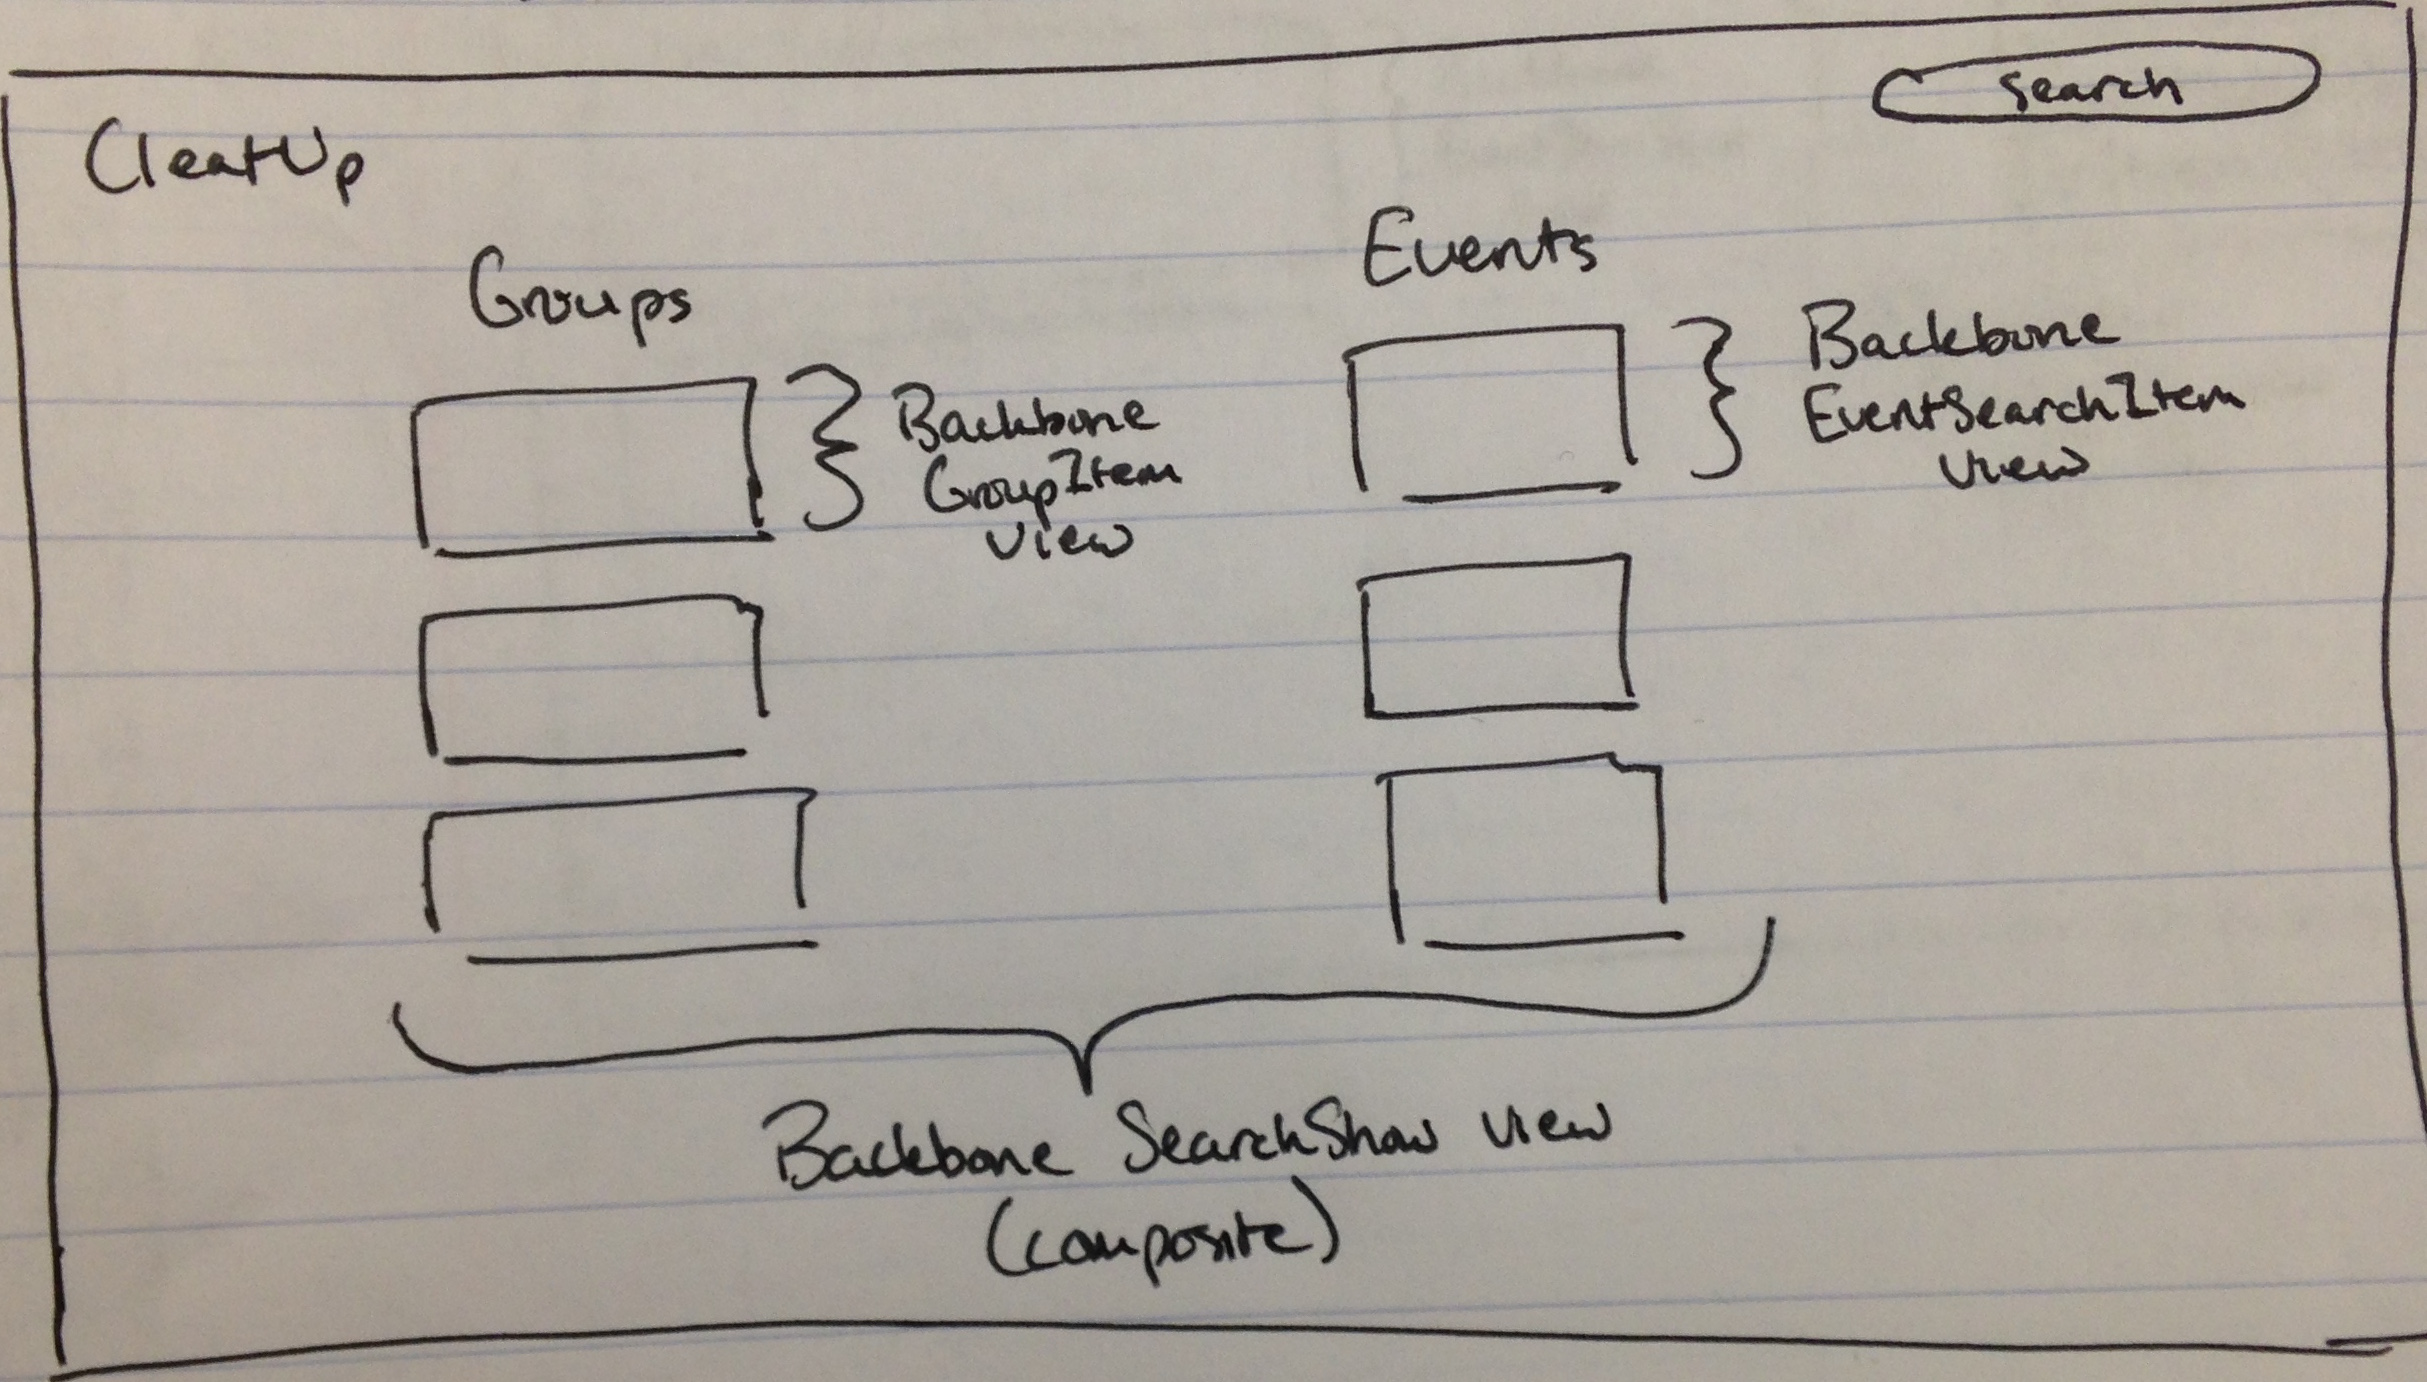 search
CleatUp
Groups
Events
Backbone
GroupItem
view
Backbone
EventSearchItem
view
Backbone SearchShow view
(composite)